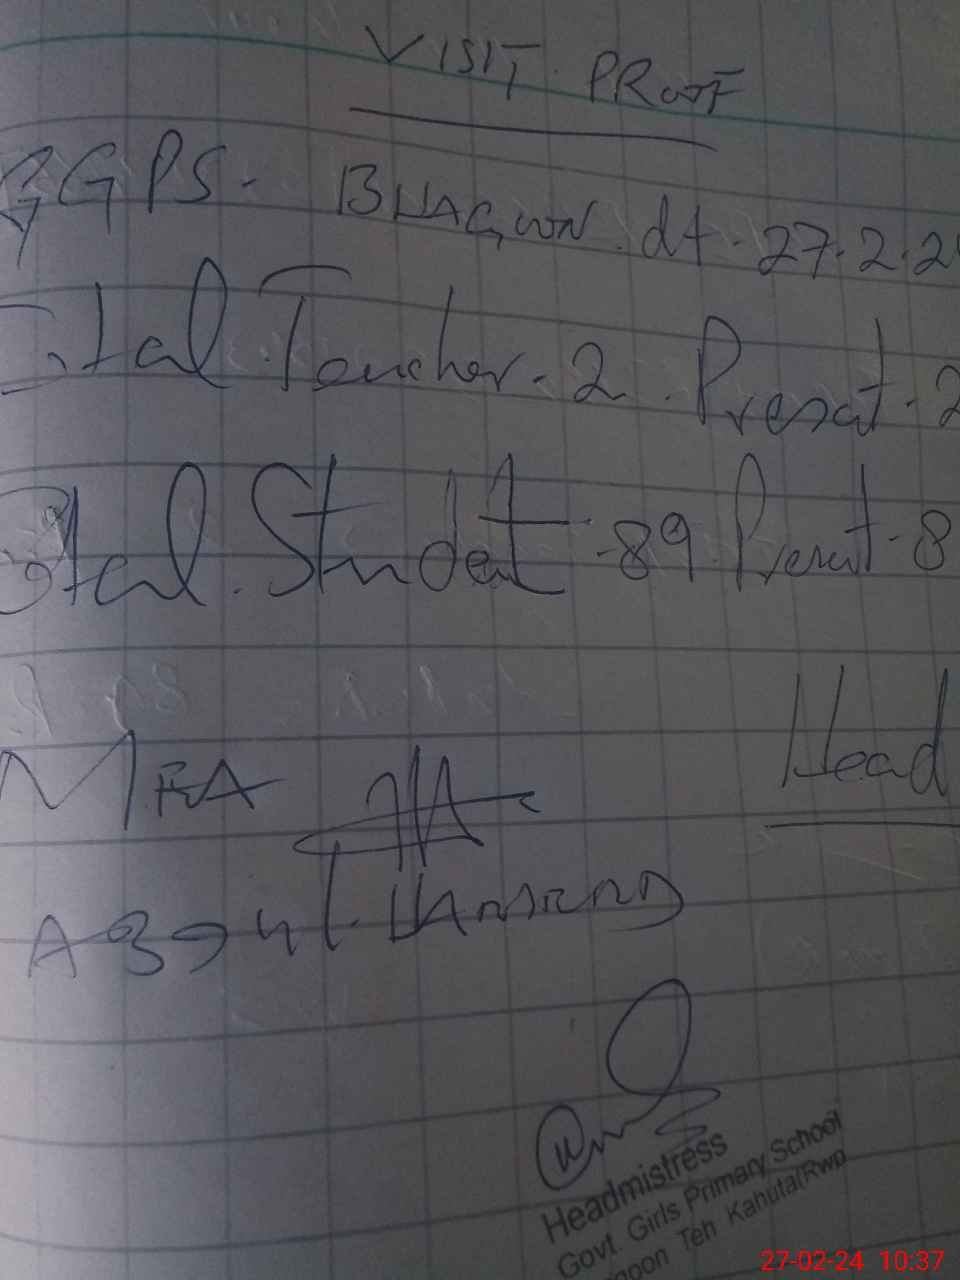 VISIT PROOF
GGPS. BHAGOON. dt. 27.2.2
Total. Teacher. 2. Present. 2
Total. Student. 89. Present. 8
Head
MEA
Headmistress
Govt. Girls Primary School
Teh Kahuta(Rwp
27-02-24 10:37